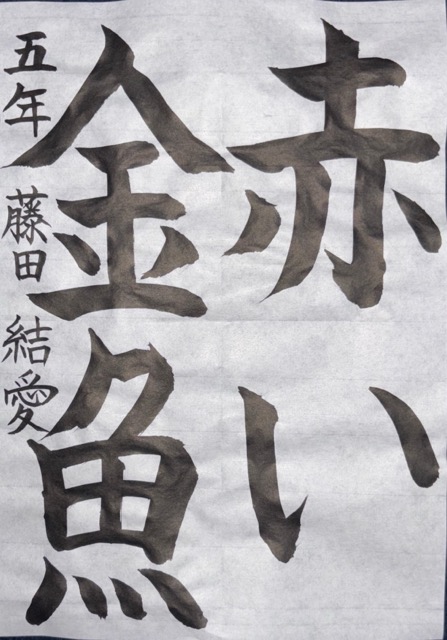 赤い
金魚
五年 藤田 結愛